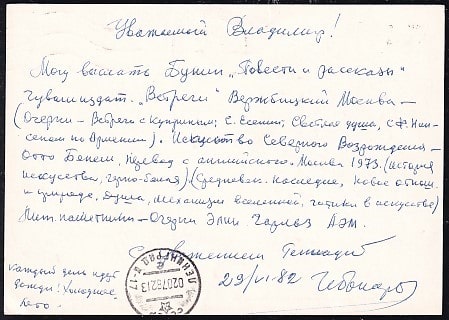 Уважаемый Владимир!
Могу выслать Бунин „Повести и рассказы"
Чувашиздат. „Встречи" Вержбицкий Москва —
(Очерки — Встречи с Куприным; С. Есенин; Светлая душа, с Ф. Нан-
сеном по Армении). Искусство Северного Возрождения —
Отто Бенеш, перевод с английского. Москва 1973. (История
искусства, черно-белая) (Средневек. наследие, новое отнош.
к природе, душа, механизм вселенной, готики в искусстве)
Лит. памятники — Очерки Элии Чарльз Лэм.
С уважением Геннадий
29/VI-82
Каждый день идут
дожди! Холодное
лето.
ЛЕНИНГРАД В-17
020782